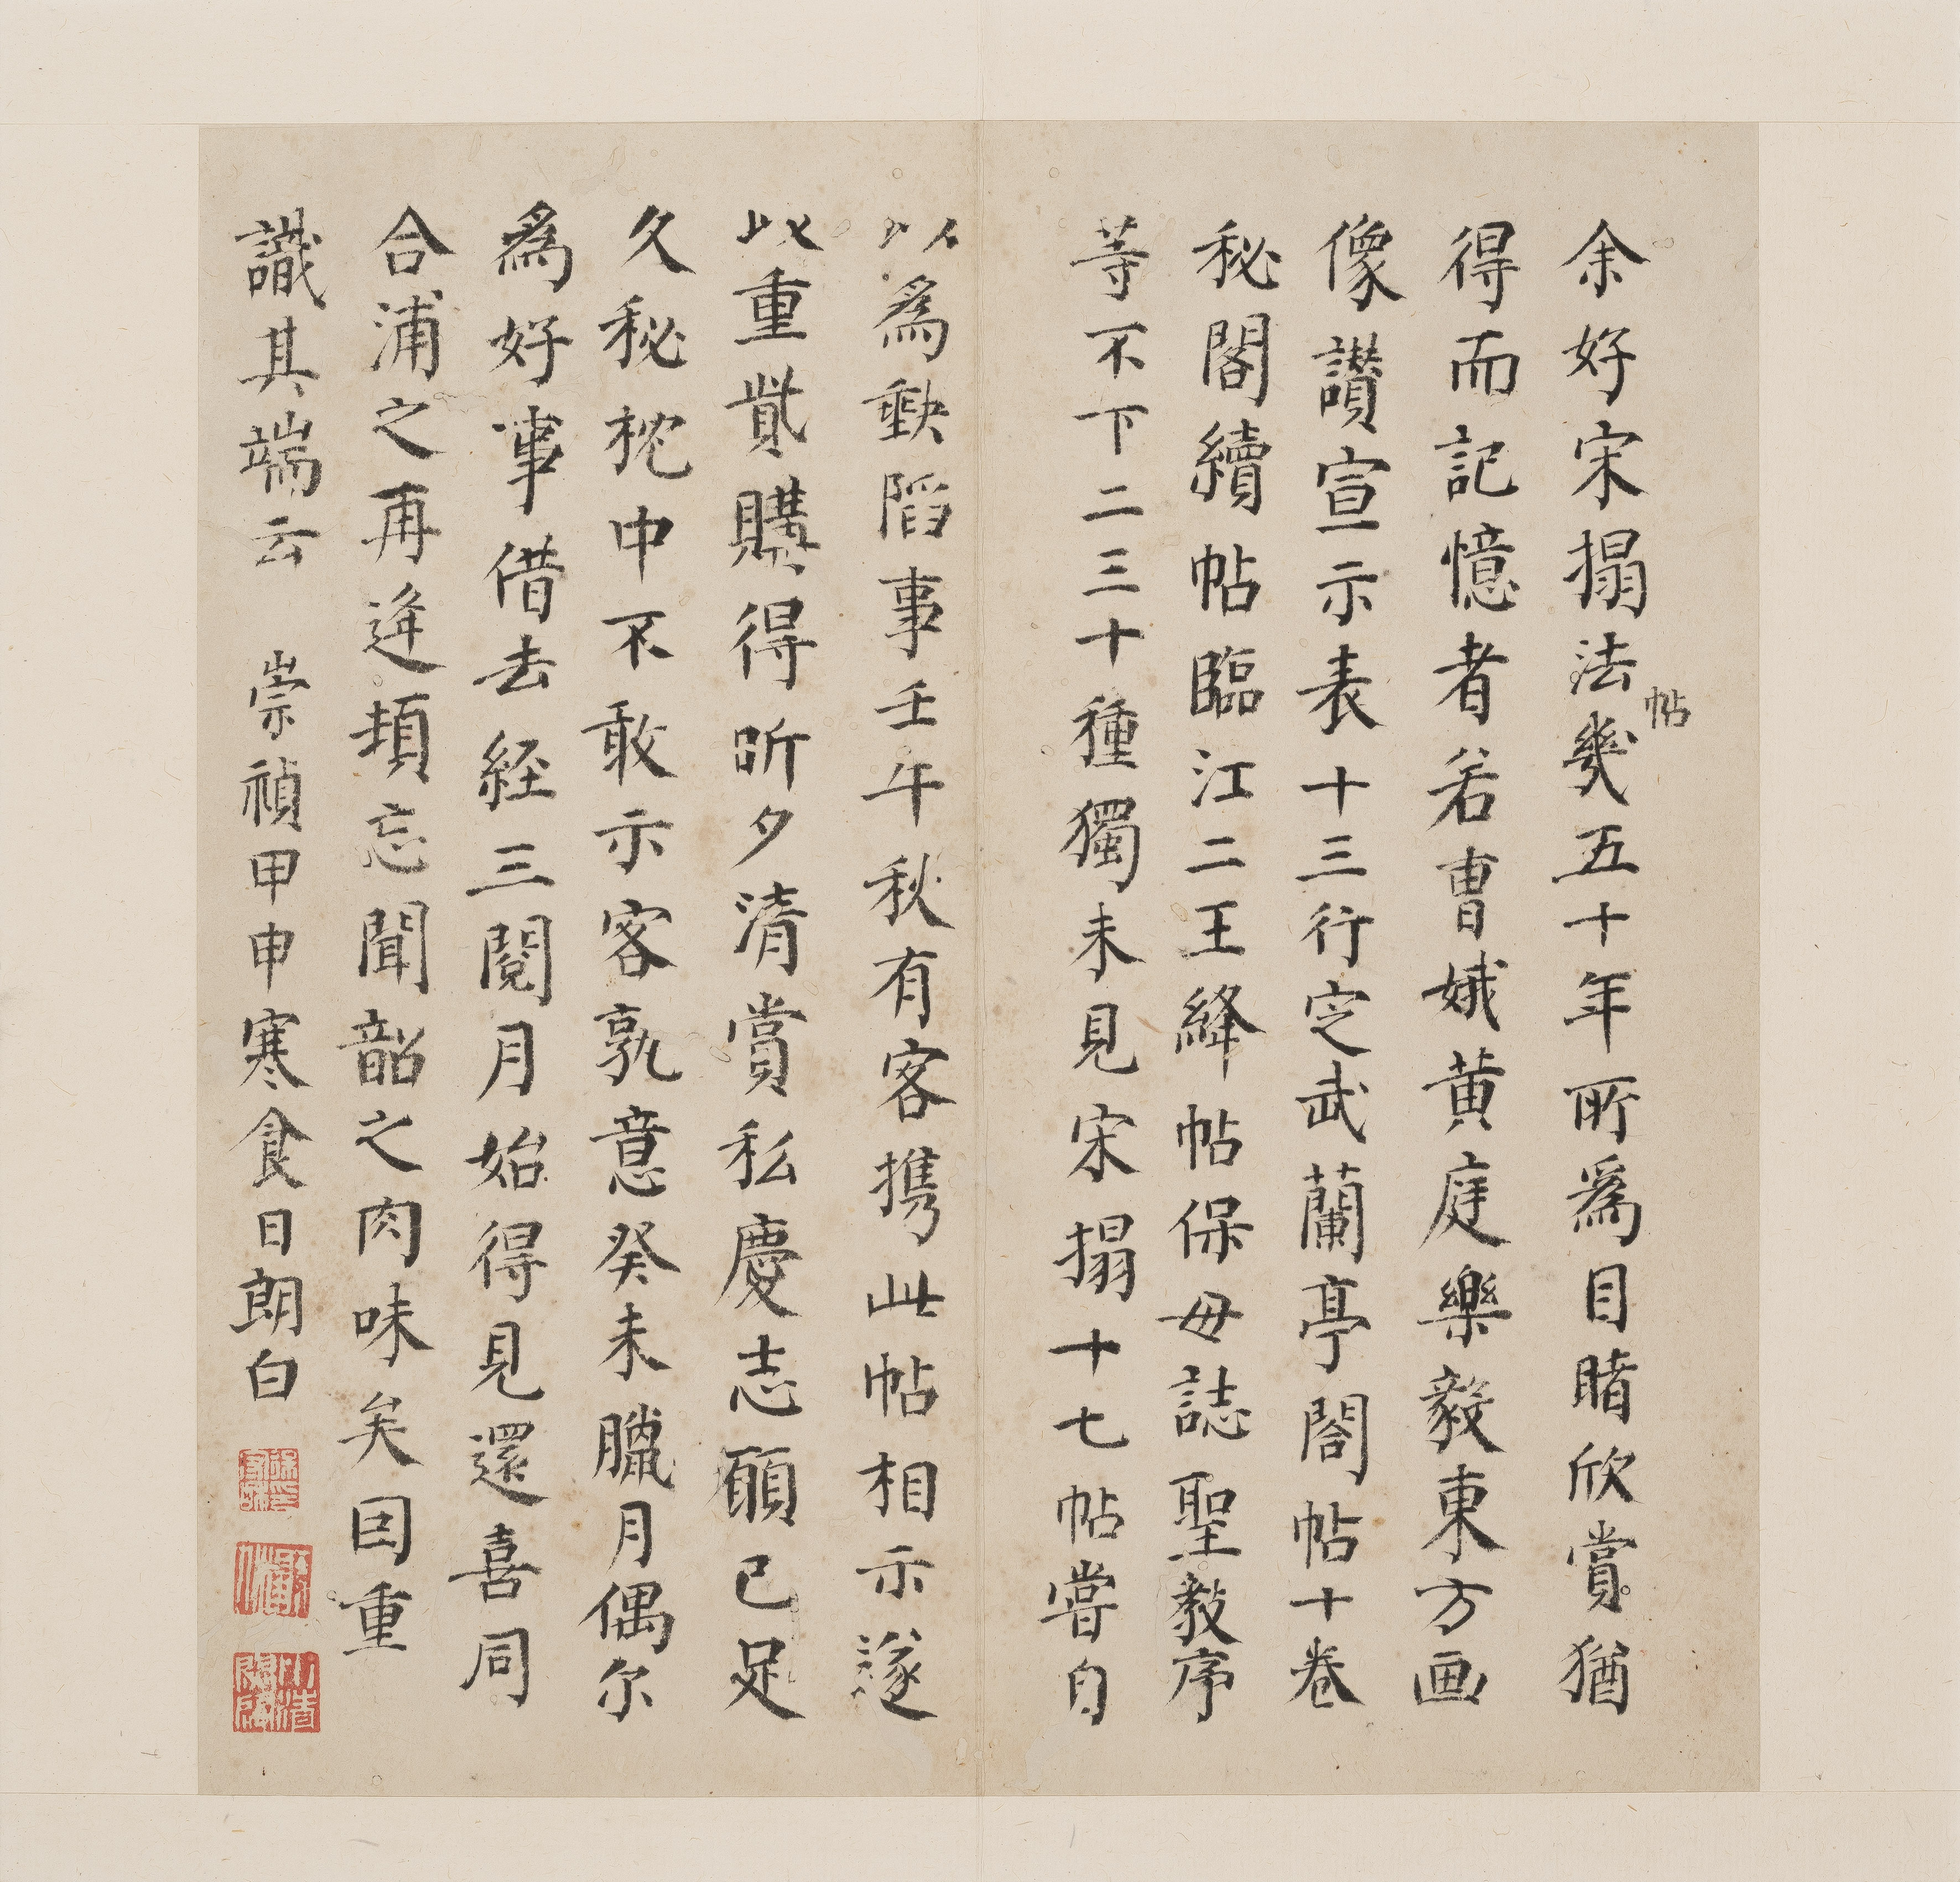 余好宋搨法帖幾五十年所爲目睹欣賞猶
得而記憶者若曺娥黄庭樂毅東方画
像讃宣示表十三行定武蘭亭閣帖十卷
秘閣續帖臨江二王絳帖保母誌聖教序
等不下二三十種獨未見宋搨十七帖嘗自
以爲缺陷事壬午秋有客携此帖相示遂
以重貲購得昕夕清賞私慶志願已足
久秘枕中不敢示客孰意癸未臘月偶尔
爲好事借去経三閲月始得見還喜同
合浦之再逢頓忘聞韶之肉味矣因重
識其端云 崇禎甲申寒食日朗白